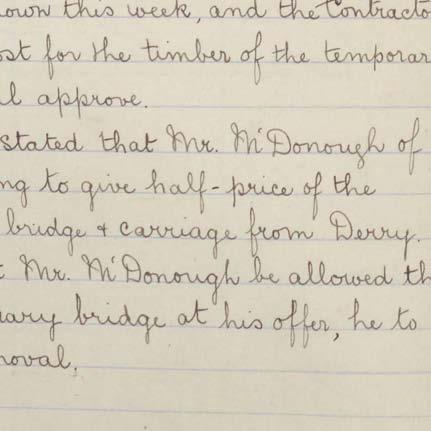 own this week, and the Contracto
st for the timber of the temporar
l approve.
stated that Mr. McDonough of
ng to give half-price of the
bridge + carriage from Derry.
t Mr. McDonough be allowed th
rary bridge at his offer, he to
moval.